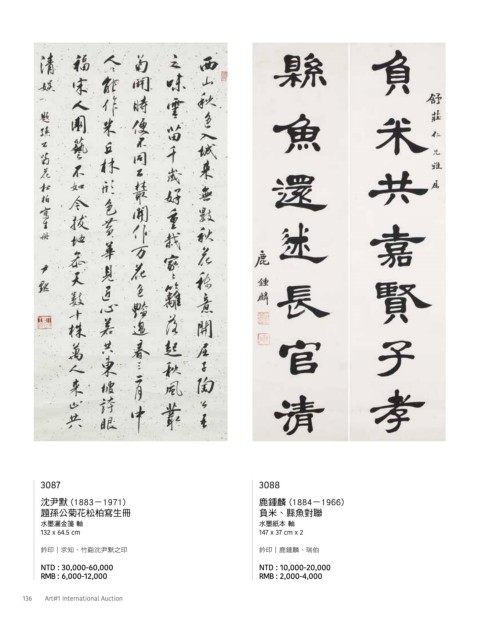 西山秋色入城來無數秋花稱意開屈子陶公
之味雲留千歲好重栽家家籬落起秋風叢
菊開時便不同
人人能作米丘林形色黃華見匠心若共東坡詩眼
福宋人園藝不如今拔地參天數十株萬人來此共
清娛 題孫公菊花松柏寫生冊 尹默
舒莊仁兄雅屬
負米共嘉賢子孝
縣魚還述長官清
鹿鍾麟
3087
沈尹默 (1883－1971)
題孫公菊花松柏寫生冊
水墨灑金箋 軸
132 x 64.5 cm
鈐印｜求知、竹谿沈尹默之印
NTD : 30,000-60,000
RMB : 6,000-12,000
3088
鹿鍾麟 (1884－1966)
負米、縣魚對聯
水墨紙本 軸
147 x 37 cm x 2
鈐印｜鹿鍾麟、瑞伯
NTD : 10,000-20,000
RMB : 2,000-4,000
136 Art#1 International Auction